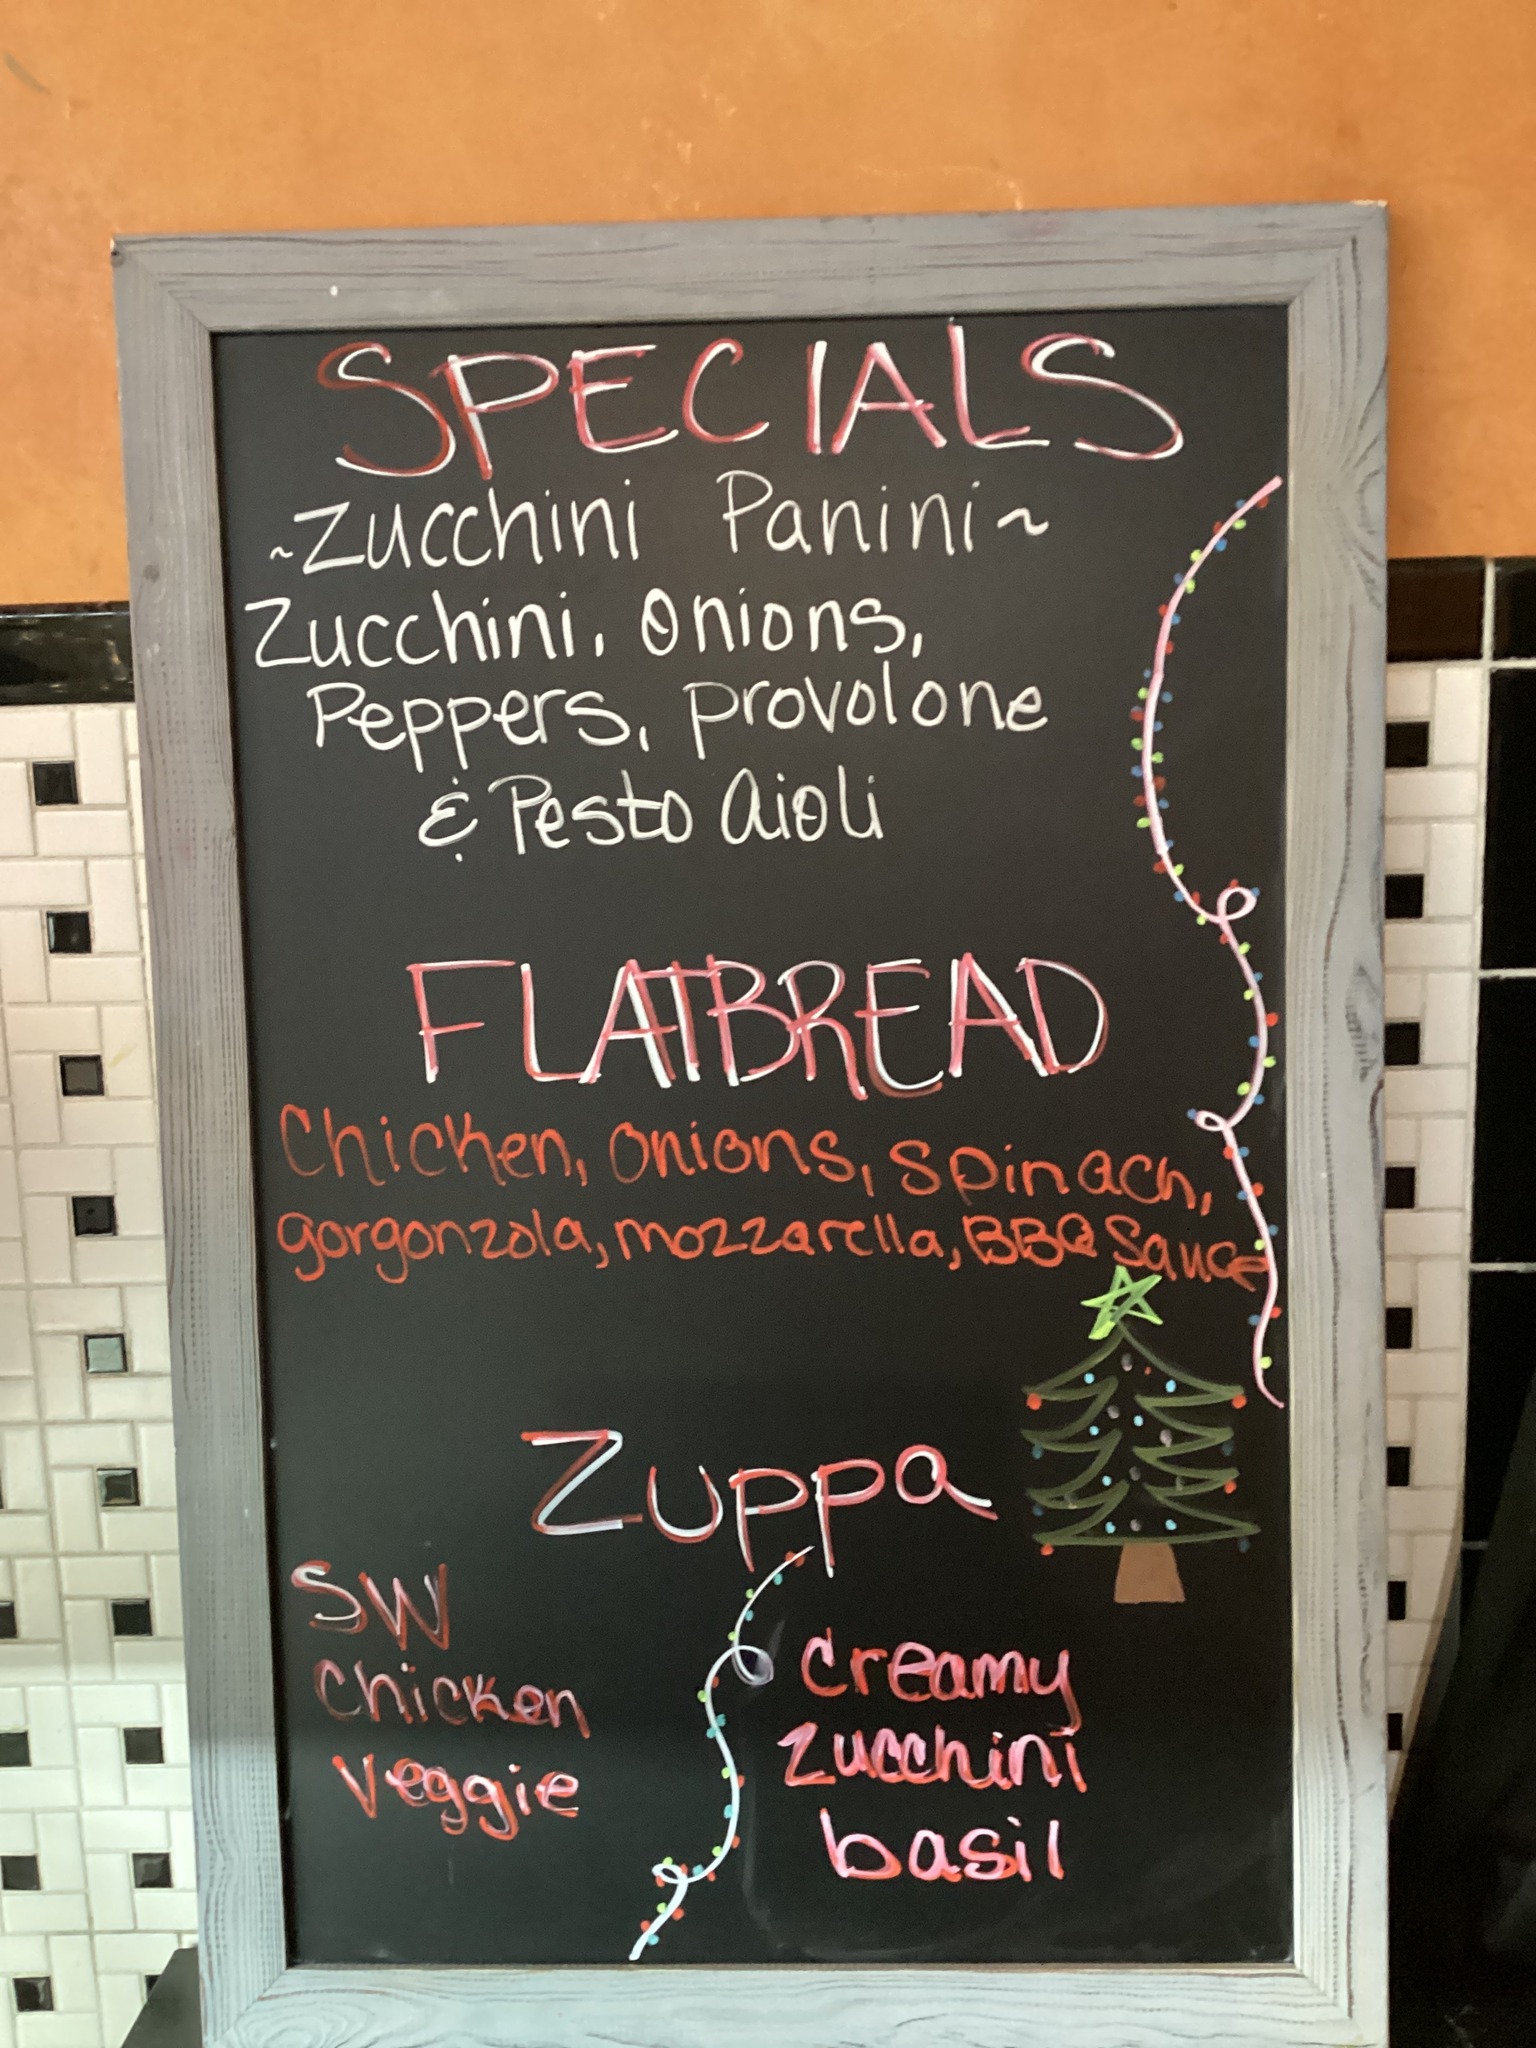 SPECIALS
~Zucchini Panini~
Zucchini, Onions,
Peppers, provolone
& Pesto aioli
FLATBREAD
Chicken, onions, spinach,
gorgonzola, mozzarella, BBQ Sauce
Zuppa
SW
Chicken
veggie
creamy
zucchini
basil